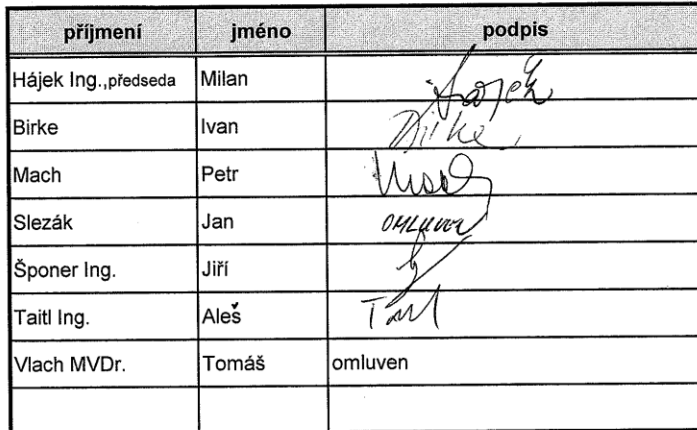 příjmení jméno podpis
Hájek Ing.,předseda Milan Hájek
Birke Ivan Birke
Mach Petr
Slezák Jan OMLUVEN
Šponer Ing. Jiří
Taitl Ing. Aleš
Vlach MVDr. Tomáš omluven